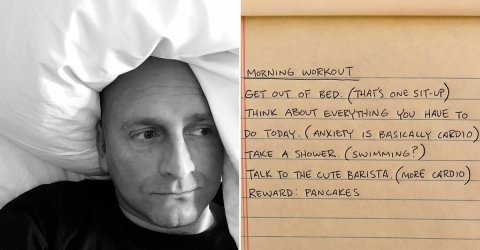 MORNING WORKOUT
GET OUT OF BED. (THAT'S ONE SIT-UP)
THINK ABOUT EVERYTHING YOU HAVE TO
DO TODAY. (ANXIETY IS BASICALLY CARDIO)
TAKE A SHOWER. (SWIMMING?)
TALK TO THE CUTE BARISTA. (MORE CARDIO)
REWARD: PANCAKES